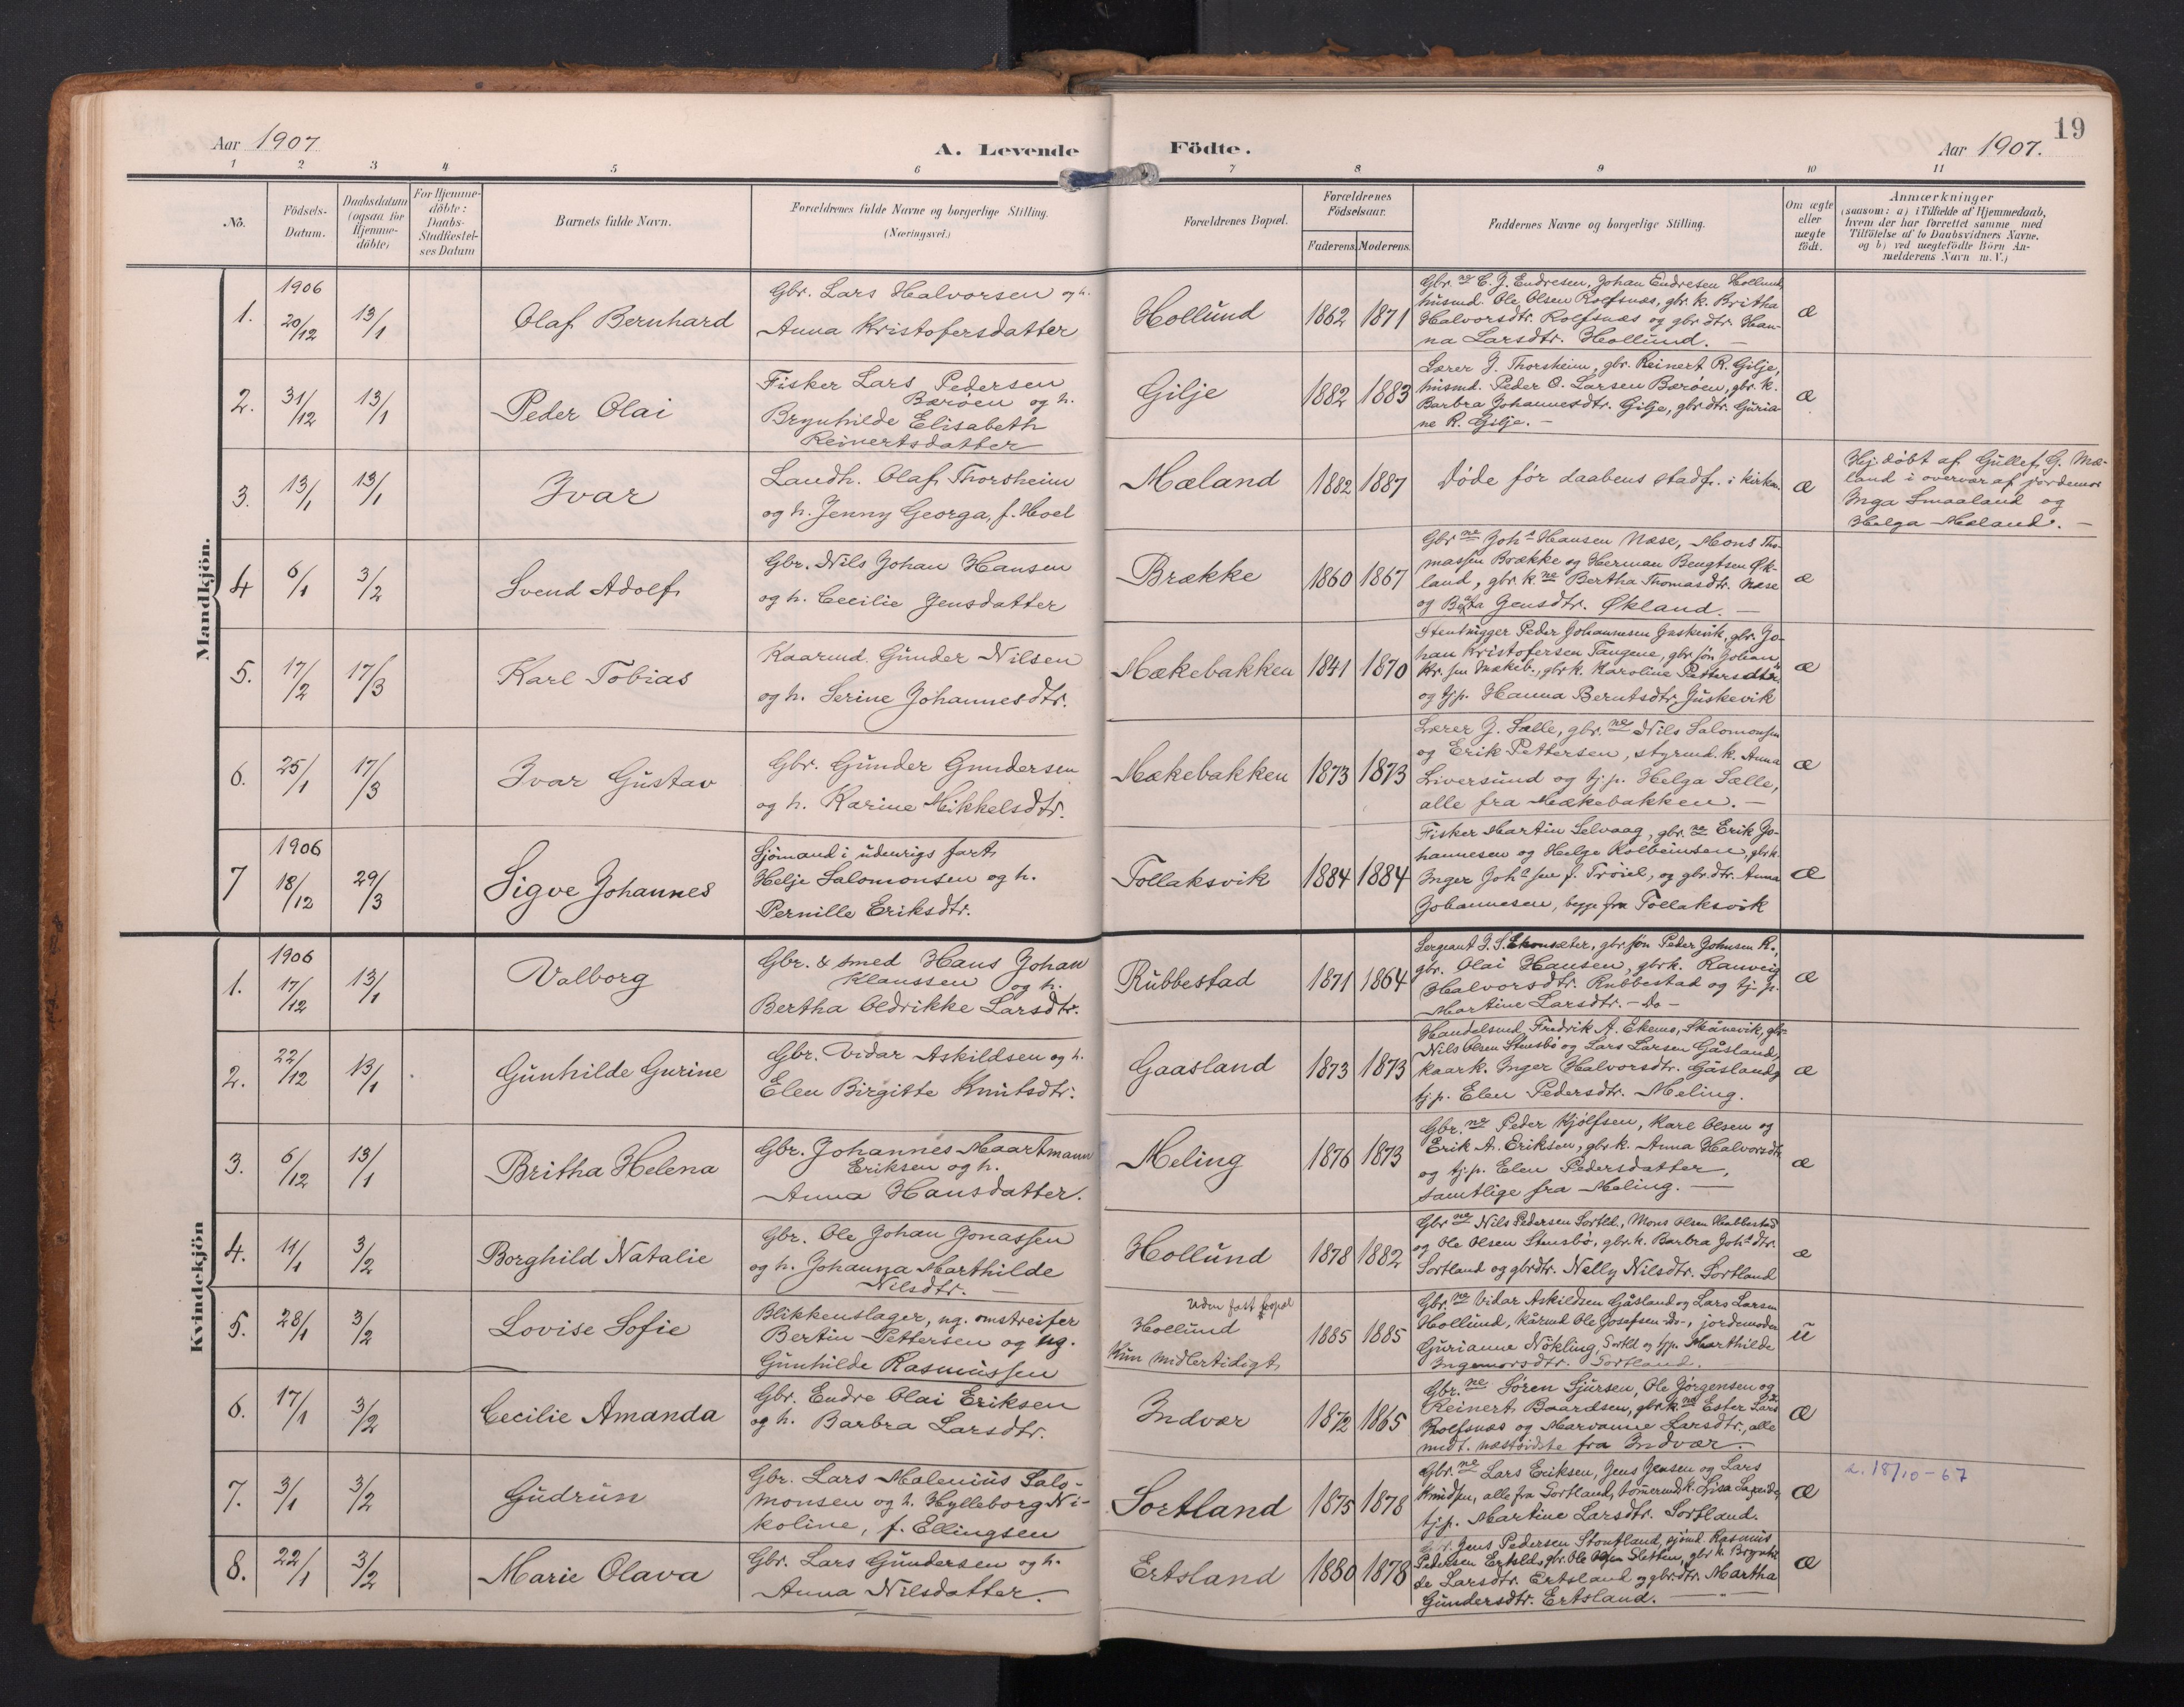 19
Aar 1907
A. Levende Födte.
Aar 1907.
1 2 3 4 5 6 7 8 9 10 11
No.
Födsels-
Datum.
Daabsdatum
(ogsaa for
Hjemme-
döbte)
For Hjemme-
döbte:
Daabs-
Stadfæstel-
ses Datum
Barnets fulde Navn.
Forældrenes fulde Navne og borgerlige Stilling.
(Næringsvei.)
Forældrenes Bopæl.
Forældrenes
Födselsaar.
Faderens. Moderens.
Faddernes Navne og borgerlige Stilling.
Om ægte
eller
uægte
födt.
Anmærkninger
(saasom: a) i Tilfælde af Hjemmedaab,
hvem der har forrettet samme med
Tilföielse af to Daabsvidners Navne.
og b) ved uægtefödte Börn An-
melderens Navn m.V.)
Mandkjön.
1.
1906
20/12
13/1
Olaf Bernhard
Gbr. Lars Halvorsen og h.
Anna Kristofersdatter
Hollund
1862 1871
Gbr.ne C. J. Endresen, Johan Endresen Hollund,
husmd. Ole Olsen Rolfsnæs, gbr. k. Britha
Halvorsdtr. Rolfsnæs og gbr dtr. Han-
na Larsdtr. Hollund. –
æ
2.
31/12
13/1
Peder Olai
Fisker Lars Pedersen
Bærøen og h.
Brynhilde Elisabeth
Reinertsdatter
Gilje
1882 1883
Lærer J. Thorsheim, gbr. Reinert R. Gilje,
husmd. Peder O. Larsen Bærøen, gbr. k.
Barbra Johannesdtr. Gilje, gbr.dtr. Guria-
ne R. Gilje. –
æ
3.
13/1
13/1
Ivar
Landh. Olaf Thorsheim
og h. Jenny Georga, f. Hoel
Mæland
1882 1887
Døde før daabens stadf. i kirken
æ
Hj. døbt af Gullef G. Mæ-
land i overvær af jordemor
Inga Smaaland og
Helga Mæland. –
4
6/1
3/2
Svend Adolf
Gbr. Nils Johan Hansen
og h. Cecilie Jensdatter
Brække
1860 1867
Gbr ne Joh.s Hansen Næse, Mons Tho-
massen Brække og Herman Bengtsen Øk-
land, gbr. k.ne Bertha Thomasdtr. Næse
og Beata Jensdtr. Økland. –
æ
5.
17/2
17/3
Karl Tobias
Kaarmd. Gunder Nilsen
og h. Serine Johannesdtr.
Mækebakken
1841 1870
Peder Johannesen Juskevik, gbr. Jo-
han Kristofersen Tangene, gbr. søn Johan
Kr. sen Mækeb., gbr k. Karoline Pettersdtr.
og tj.p. Hanna Berntsdtr. Juskevik
æ
6.
25/1
17/3
Ivar Gustav
Gbr. Gunder Gundersen
og h. Karine Mikkelsdtr.
Mækebakken
1873 1873
Lærer J. Sælle, gbr. ne Nils Salomonsen
og Erik Pettersen, styrmd. k. Anna
Siversund og tj. p. Helga Sælle,
alle fra Mækebakken. –
æ
7
1906
18/12
29/3
Sigve Johannes
Sjømand i udenrigs fart
Helje Salomonsen og h.
Pernille Eriksdtr.
Tollaksvik
1884 1884
Fisker Martin Selvaag, gbr. ne Erik Jo-
hannesen og Helge Kolbeinsen, gbr k.
Inger Joh.s sen f. Trøiel, og gbr.dtr. Anna
Johannesen, begge fra Tollaksvik
æ
Kvindekjön
1.
1906
17/12
13/1
Valborg
Gbr. & smed Hans Johan
Klaussen og h.
Bertha Oldrikke Larsdtr.
Rubbestad
1871 1864
Sergeant J. S. Ekornsæter, gbr søn Peder Johnsen R.,
gbr. Olai Hansen, gbr k. Ranveig
Halvorsdtr. Rubbestad og tj. p.
Martine Larsdtr. – Do –
æ
2.
22/12
13/1
Gunhilde Gurine
Gbr. Vidar Askildsen og h.
Elen Birgitte Knutsdtr.
Gaasland
1873 1873
Handelsmd. Fredrik A. Ekenes, Skånevik, gbr.
Nils Olsen Stensbø og Lars Larsen Gåsland,
kaark. Inger Halvorsdtr. Gåsland og
tj. p. Elen Pedersdtr. Meling.
æ
3.
6/12
13/1
Britha Helena
Gbr. Johannes Maartmann
Eriksen og h.
Anna Hansdatter.
Meling
1876 1873
Gbr. ne Peder Kjølfsen, Karl Olsen og
Erik A. Eriksen, gbr k. Anna Halvorsdtr
og tj. p. Elen Pedersdatter,
samtlige fra Meling. –
æ
4.
11/1
3/2
Borghild Natalie
Gbr. Ole Johan Jonassen
og h. Johanna Marthilde
Nilsdtr. –
Hollund
1878 1882
Gbr ne Nils Pedersen Sortld., Mons Olsen Habbestad
og Ole Olsen Stensbø, gbr. k. Barbra Joh.s dtr.
Sortland og gbrdtr. Nelly Nilsdtr. Sortland
æ
5.
28/1
3/2
Lovise Sofie
Blikkenslager, ug. omstreifer
Bertin Pettersen og ug.
Gunhilde Rasmussen
Uden fast bopæl
Hollund
Kun midlertidigt
1885 1885
Gbr. ne Vidar Askildsen Gåsland og Lars Larsen
Hollund, kårmd Ole Josefsen –Do–, jordemoder
Gurianne Nökling, Sortld og tj.p. Marthilde
Ingemorsdtr. Sortland.
u
6.
17/1
3/2
Cecilie Amanda
Gbr. Endre Olai Eriksen
og h. Barbra Larsdtr.
Indvær
1872 1865
Gbr. ne Søren Sjursen, Ole Jørgensen og
Reinert Baardsen, gbr. k. ne Ester Lars
Rolfsnæs og Marvanne Larsdtr., alle
undt. næstsidste fra Indvær. –
æ
7.
3/1
3/2
Gudrun
Gbr. Lars Malenius Salo-
monsen og h. Hylleborg Ni-
koline, f. Ellingsen
Sortland
1875 1878
Gbr. ne Lars Eriksen, Jens Jensen og Lars
Knudsen, alle fra Sortland, tømermd k. Lisa
tj. p. Martine Larsdtr. Sortland.
æ
18/10-67
8.
22/1
3/2
Marie Olava
Gbr. Lars Gundersen og h.
Anna Nilsdatter.
Ertsland
1880 1878
Gbr. Jens Pedersen Stoutland, sjømd. Rasmus
Pedersen Ertsld., gbr. Ole Olsen Sletten, gbr. k. Brynhil-
de Larsdtr. Ertsland og gbr.dtr. Martha
Gundersdtr. Ertsland. –
æ